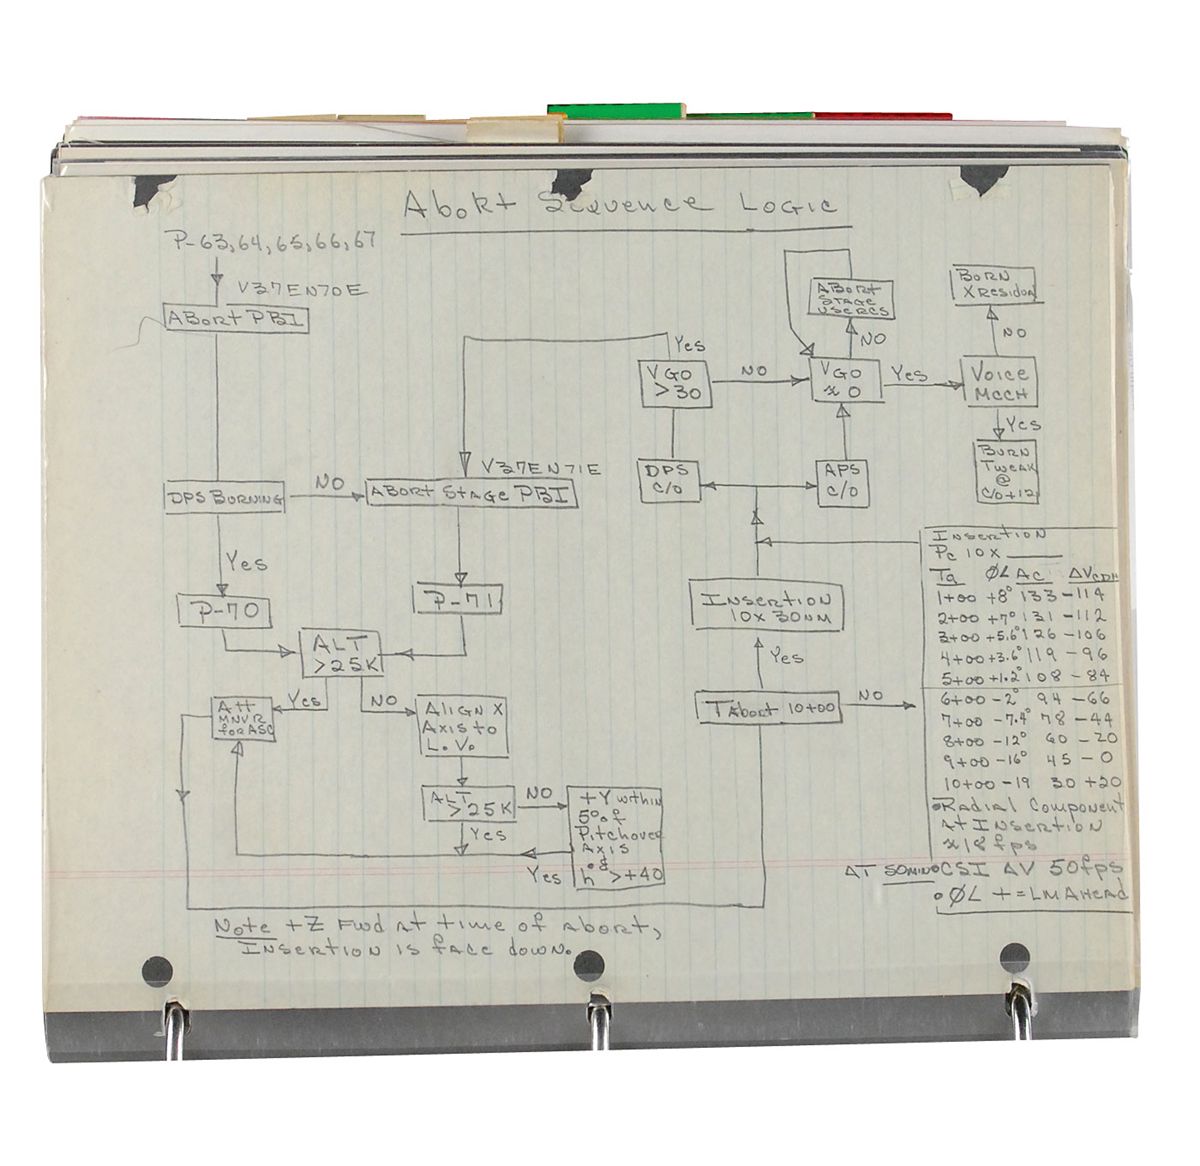 Abort Sequence Logic
P-63,64,65,66,67
V37EN70E
Abort PBI
DPS Burning
NO
Yes
P-70
V37EN71E
Abort Stage PBI
P-71
ALT
>25K
Yes
NO
Att
MNVR
for ASC
Align X
Axis to
L.V.
ALT
>25K
NO
Yes
+Y within
5° of
Pitchover
Axis
&
ḣ >+40
Yes
Note +Z Fwd at time of abort,
Insertion is face down.
Yes
VGO
>30
NO
DPS
C/O
Abort
Stage
NO
VGO
≈ 0
Yes
APS
C/O
Burn
X Residual
NO
Voice
MCCH
Yes
Burn
Tweak
@
C/O+12
Insertion
10x30NM
Yes
TAbort 10+00
NO
Insertion
Pc 10X ____
Ta ØL Ac ΔVCDH
1+00 +8° 133 -114
2+00 +7° 131 -112
3+00 +5.6° 126 -106
4+00 +3.6° 119 -96
5+00 +1.2° 108 -84
6+00 -2° 94 -66
7+00 -7.4° 78 -44
8+00 -12° 60 -20
9+00 -16° 45 -0
10+00 -19 30 +20
•Radial Component
At Insertion
≈18 fps
ΔT 50min •CSI ΔV 50fps
•ØL + = LM Ahead